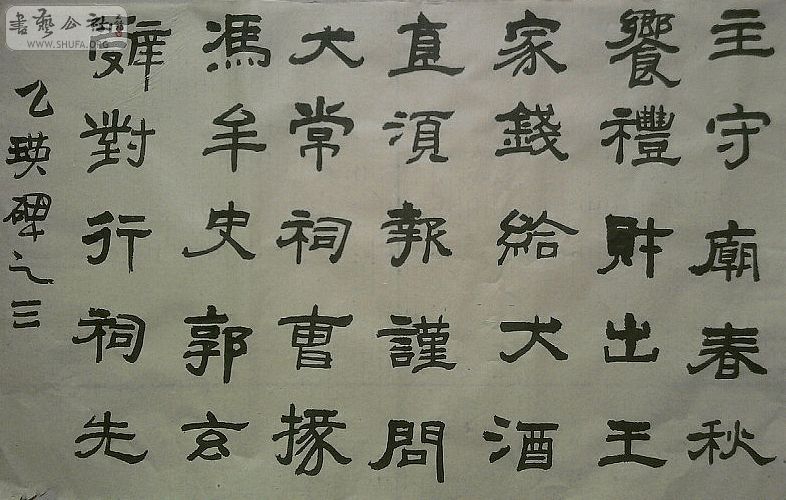 主守廟春秋
饗禮財出王
家錢給犬酒
直須報謹問
大常祠曹掾
馮牟史郭玄
辭對行祠先
乙瑛碑之三
書藝公社
WWW.SHUFA.ORG